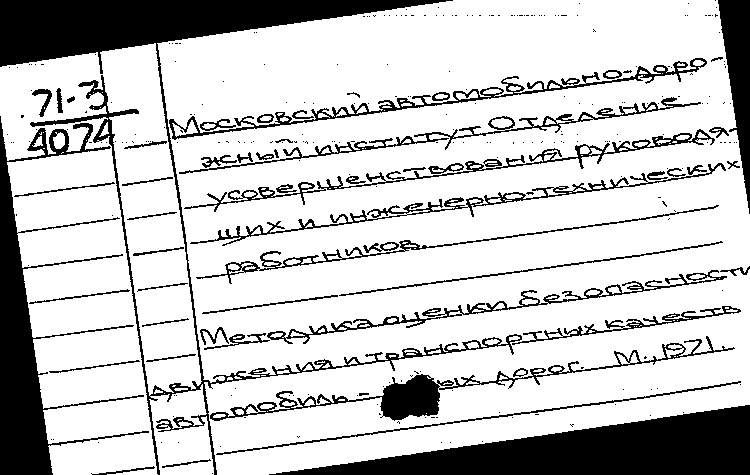 71-3
4074
Московский автомобильно-доро-
жный институт Отделение
усовершенствования руководя-
щих и инженерно-технических
работников.
Методика оценки безопасности
движения и транспортных качеств
автомобиль- ных дорог. М., 1971.